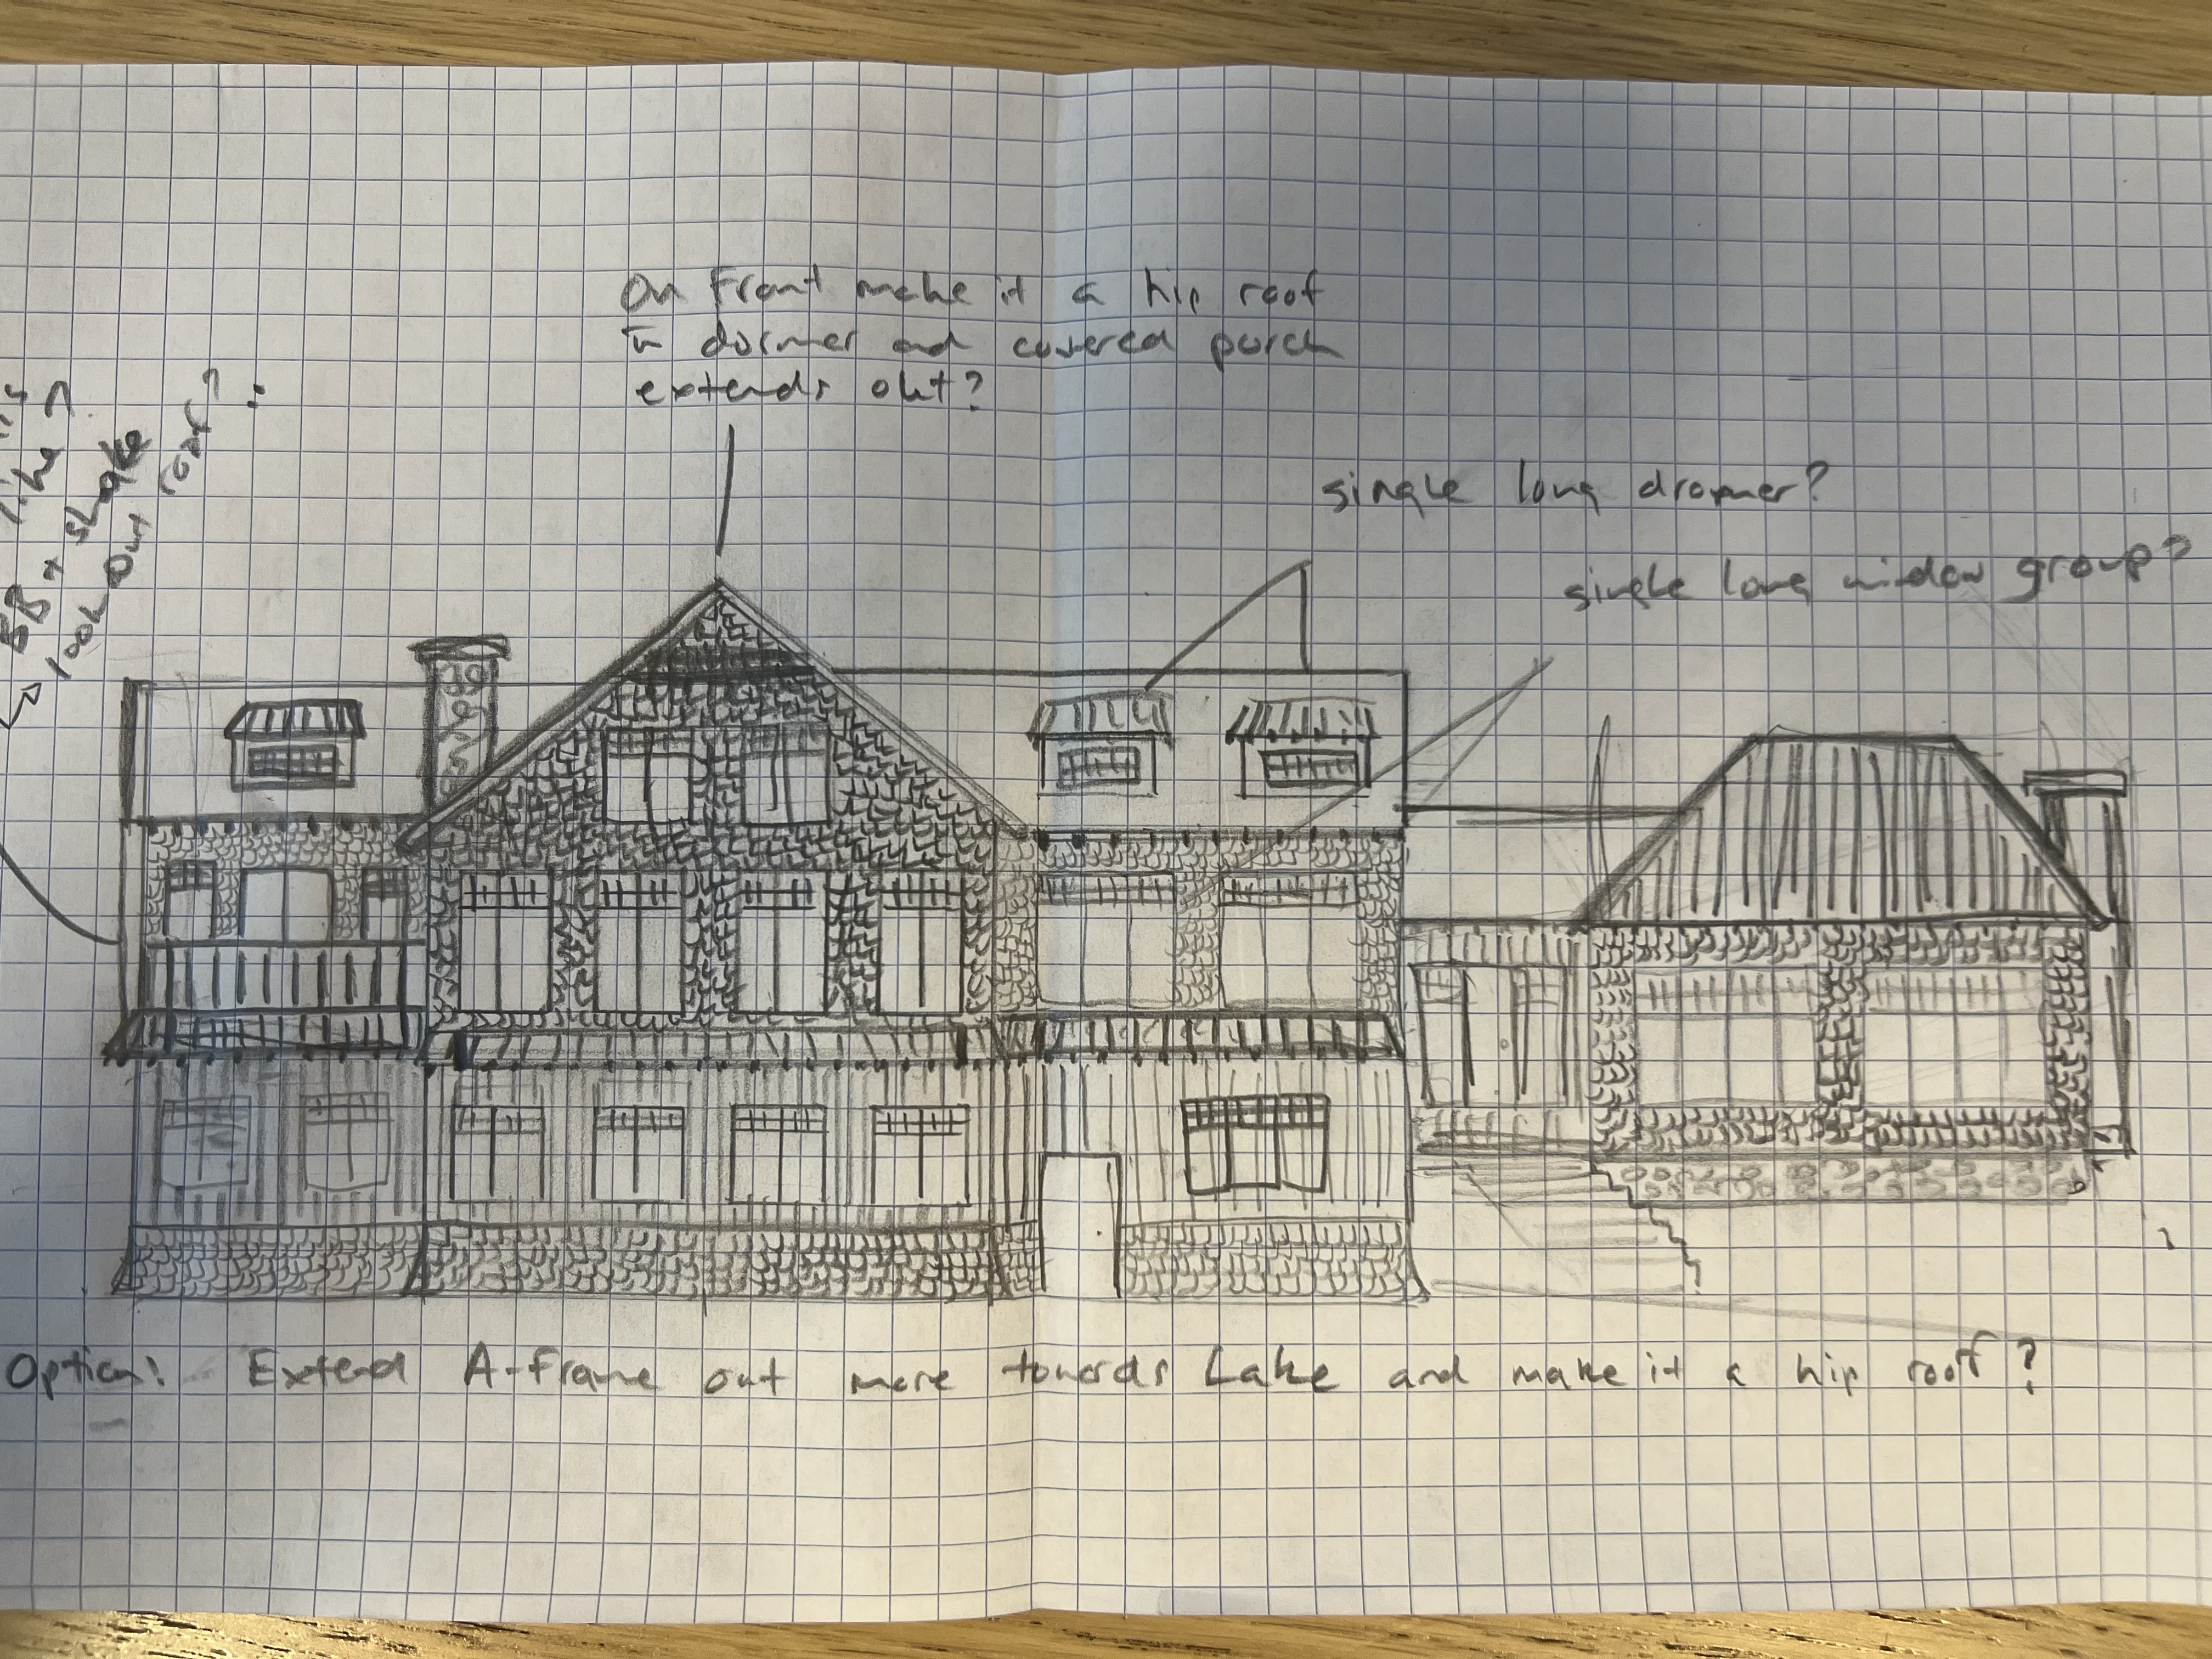 On Front make it a hip roof
dormer and covered porch
extends out?
single long dromer?
single long window group?
like
BB + shake
look our roof?
Option: Extend A-Frame out more towards Lake and make it a hip roof?